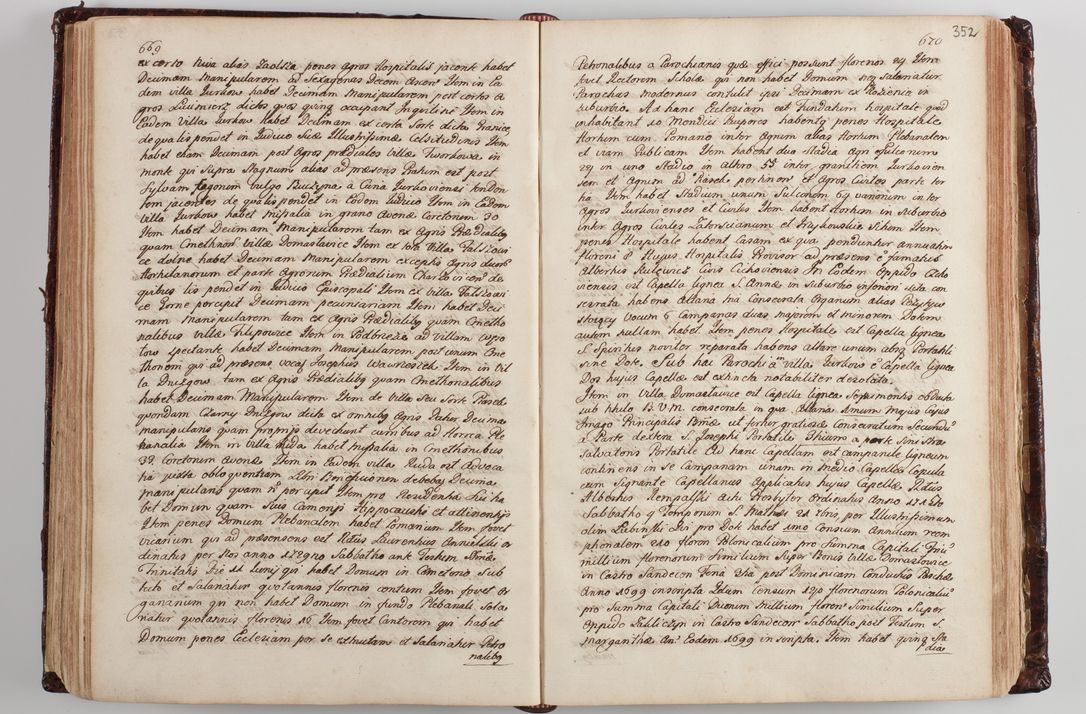 669
ex certo Niva alias Zaolza penes Agros Hospitalis jacente habet
Decimam Manipularem ad Sexagenas Decem Avenæ Item in Ea
dem villa Jurkow habet Decimam Manipularem post certos A
gros dictos quos occupant Inquilini Item in
Eadem Villa Jurkow Habet Decimam ex certa Sorte dicta
de qua lis pendet in Judicio Suæ Illustrissimæ Celsitudinis Item
habet etiam Decimam post Agros prædiales villæ Tworkowa in
monte qui supra Stagnum alias ad præsens Pratum est post
Sylvam fagorum vulgo Buczyna a Cäna Jurkoviensi tenden
tem jacentes de qua lis pendet in Eodem Judicio Item in Eadem
Villa Jurkow habet Missalia in grano Avenæ Coretorum 30
Item habet Decimam Manipularem tam ex Agris Prædialibq
quam Cmethonum Villæ Domaslavice Item ex tota Villa
ce dolne habet Decimam Manipularem exceptis Agris duorum
Hortulanorum et parte Agrorum Prædialium de
quibus lis pendet in Judicio Episcopali Item ex Villa
ce Gorne percipit Decimam pecuniariam Item habet Deci
mam Manipularem tam ex Agris Prædialibq quam Cmetho
nalibus villæ Filipowice Item in Podbrzezie ad villam
tow spectante habet Decimam Manipularem post unum Cme
thonem qui ad præsens vocat Josephus Item in Vil
la Druzgow tam ex Agris Prædialibq quam Cmethonalibus
habet Decimam Manipularem Item de villa Seu Sorte
quondam Czarny Druzgow dicta ex omnibq Agris Datur Decima
manipularis quam præmissi devehunt cum ibus ad Horrea Ple
banalia Item in Villa Ruda habet Missalia in Cmethonibus
32 Coretorum Avenæ Item in Eadem villa Ruda est Advoca
tia juxta obloquentiam Libri Beneficiorum debebat Decima
manipularis quam non percipit Item pro Residentia Sui ha
bet Domum quam Suis Cameris Hippocausti et attinentijs
Item penes Domum Plebanalem habet Pomarium Item fovet
Vicarium qui ad præsensens est Rndus Laurentius Or
dinatus per Nos anno 1729no Sabbatho ante Festum Sanctæ
Trinitatis Die 11 Junij qui habet Domum in Cæmeterio Sub
tecto et Salariatur quotannis florenos centum Item fovet or
ganarium qui non habet Domum in fundo Plebanali Sala
riatur quotannis florenis 16 Item fovet Cantorem qui habet
Domum penes Ecclesiam per se extructam et Salariatur Petro
nalibq
670
352
Patronalibus a Parochianis quæ effici possunt florenos 24 Item
fovet Rectorem Scholæ qui non habet Domum neque salariatur
Parochus modernus contulit ipsi Decimam ex Rozience in
suburbio. Ad hanc Ecclesiam est Fundatum hospitale quod
inhabitant 10 Mendici Pauperes habentq penes Hospitale
Hortum cum Pomario inter Agrum alias Hortum Plebanalem
et viam Publicam Item habent duo Stadia Agri Sulcorum
24 in uno Stadio in altero 52 inter granitiem Jurkovien
sem et Agrum ad pertinen et Agros Civiles parte ter
tia Item habet Stadium unum Sulcorum 64 variorum inter
Agros Jurkovienses et Civiles Item habent Hortum in Suburbio
inter Agros Civiles et situm Item
penes Hospitale habent Casam ex qua penduntur annuatim
floreni 8 Hujus Hospitalis Provisor ad præsens e famatus
Albertus Civis Cichoviensis In Eodem Oppido Czcho
viensis est Capella lignea S. Annæ in Suburbio inferiori sita con
secrata habens Altaria tria Consecrata Organum alias Pozytyw
Voum 6 Campanas duas majorem et minorem Dotem
autem nullam habet Item penes Hospitale est Capella lignea
S. Spiritus noviter reparata habens altare unum absq Portatili
sine Dote. Sub hac Parochia in villa Jurkow e Capella lignea
Dos hujus Capellæ est extincta notabiliter dezolata.
Item in Villa Domaslavice est Capella lignea Sepimentis obducta
sub titulo B.V.M. consecrata in qua Altaria Unum Majus Cujus
Imago Principalis Bmæ ut fertur gratiosæ Consecratum Secundum
a Parte dextera S. Josephi Portatile Tertium a parte Sinistra
Salvatoris Portatile Ad hanc Capellam est campanile ligneum
continens in se Campanam unam in medio Capellæ Copula
cum Signante Capellanus Applicatus hujus Capellæ Rndus
Albertus Rempalski actu Presbyter Ordinatus Anno 1725to
Sabbatho q Temporum S. Matthæi 21 7bris, per Illustrissimum
olim Lubinski Qui pro Dote habet imo Censum Annuum reem
ptionalem 210 floren Polonicalium pro Summa Capitali Trium
millium florenorum similium Super Bonis Villæ Domaslavice
in Castro Sandecen Feria 2da post Dominicam Conductus Paschæ
Anno 1699 inscripta Idem Censum 140 florenorum Polonicalium
pro Summa Capitali Duorum Millium floren Similium Super
Oppido Zakliczyn in Castro Sandecen Sabbatho post Festum S.
Margarithæ Ano Eodem 1699 inscripta. Item habet quinq Sta
dia